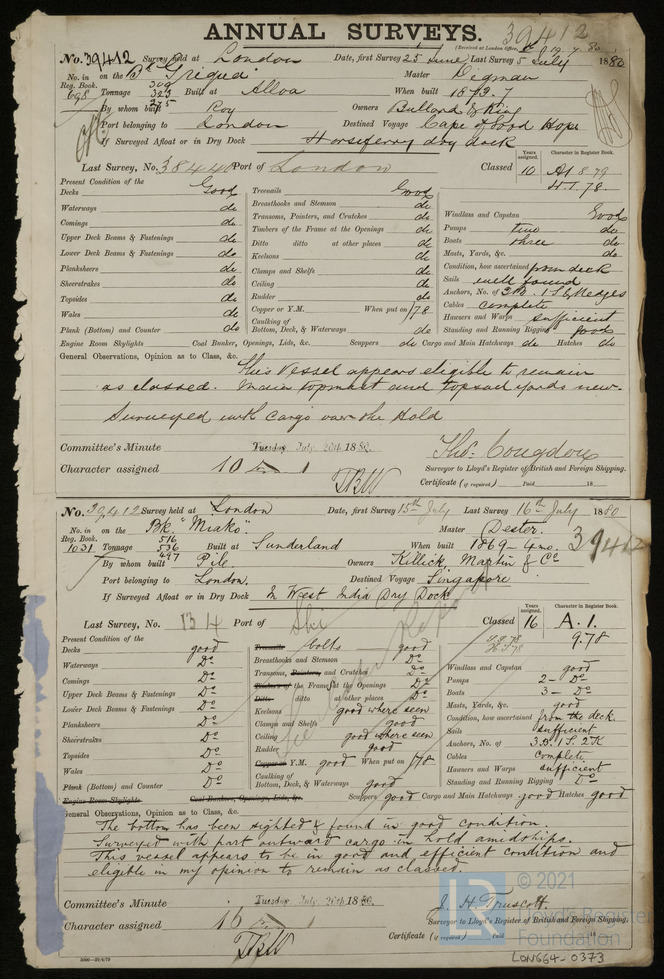 ANNUAL SURVEYS.
39412
(Received at London Office, 19.7.80)
No. 39412 Survey held at London Date, first Survey 25 June Last Survey 5 July 1880
No. in Reg. Book. 698 on the Bk Griqua Master Degman
Tonnage 309 323 295 Built at Alloa When built 1873.7
By whom built Roy Owners Bullard & King
Port belonging to London Destined Voyage Cape of Good Hope
If Surveyed Afloat or in Dry Dock Horseferry dry dock
Last Survey, No. 38440 Port of London Classed Years assigned. 10 Character in Register Book. A1 8.79
H.T. 78.
Present Condition of the
Decks Good
Waterways do
Comings do
Upper Deck Beams & Fastenings do
Lower Deck Beams & Fastenings do
Planksheers do
Sheerstrakes do
Topsides do
Wales do
Plank (Bottom) and Counter do
Treenails Good
Breasthooks and Stemson do
Transoms, Pointers, and Crutches do
Timbers of the Frame at the Openings do
Ditto ditto at other places do
Keelsons do
Clamps and Shelfs do
Ceiling do
Rudder do
Copper or Y.M. When put on /78
Caulking of Bottom, Deck, & Waterways do
Windlass and Capstan Good
Pumps two do
Boats three do
Masts, Yards, &c. do
Condition, how ascertained from deck
Sails well found
Anchors, No. of 3 B. 1 S. & Kedges
Cables complete
Hawsers and Warps sufficient
Standing and Running Rigging good
Engine Room Skylights Coal Bunker, Openings, Lids, &c. Scuppers do Cargo and Main Hatchways do Hatches do
General Observations, Opinion as to Class, &c.
This Vessel appears eligible to remain
as classed. Main topmast and topsail yards new.
Surveyed with cargo over the Hold
Committee's Minute Tuesday July 20th 1880.
Character assigned 10 1
Thos. Congdon
Surveyor to Lloyd's Register of British and Foreign Shipping.
Certificate (if required) Paid 18
TBW
No. 39412 Survey held at London Date, first Survey 15th July Last Survey 16th July 1880
No. in Reg. Book. 1031 on the Bk. "Miako" Master Dexter. 39412
Tonnage 516 536 497 Built at Sunderland When built 1869-4 mo.
By whom built Pile Owners Killick, Martin & Co
Port belonging to London. Destined Voyage Singapore
If Surveyed Afloat or in Dry Dock In West India Dry Dock
Last Survey, No. 134 Port of Shi Classed Years assigned. 16 Character in Register Book. A.1.
9.78
Present Condition of the
Decks good
Waterways Do
Comings Do
Upper Deck Beams & Fastenings Do
Lower Deck Beams & Fastenings Do
Planksheers Do
Sheerstrakes Do
Topsides Do
Wales Do
Plank (Bottom) and Counter Do
Treenails bolts good
Breasthooks and Stemson Do
Transoms, Pointers, and Crutches Do
Timbers of the Frame at the Openings Do
Ditto ditto at other places Do
Keelsons good where seen
Clamps and Shelfs good
Ceiling good where seen
Rudder good
Copper or Y.M. good When put on /78
Caulking of Bottom, Deck, & Waterways good
Windlass and Capstan good
Pumps 2- Do
Boats 3- Do
Masts, Yards, &c. good
Condition, how ascertained from the deck.
Sails sufficient
Anchors, No. of 3 B. 1 S. 2 K
Cables complete
Hawsers and Warps sufficient
Standing and Running Rigging Do
Engine Room Skylights Coal Bunker, Openings, Lids, &c. Scuppers good Cargo and Main Hatchways good Hatches good
General Observations, Opinion as to Class, &c.
The bottom has been sighted & found in good condition.
Surveyed with part outward cargo in hold amidships.
This vessel appears to be in good and efficient condition and
eligible in my opinion to remain as classed.
Committee's Minute Tuesday July 20th 1880.
Character assigned 16 1
J. H. Truscott
Surveyor to Lloyd's Register of British and Foreign Shipping.
Certificate (if required) Paid 18
TBW
LR © 2021
Lloyd's Register
Foundation
LON664-0373